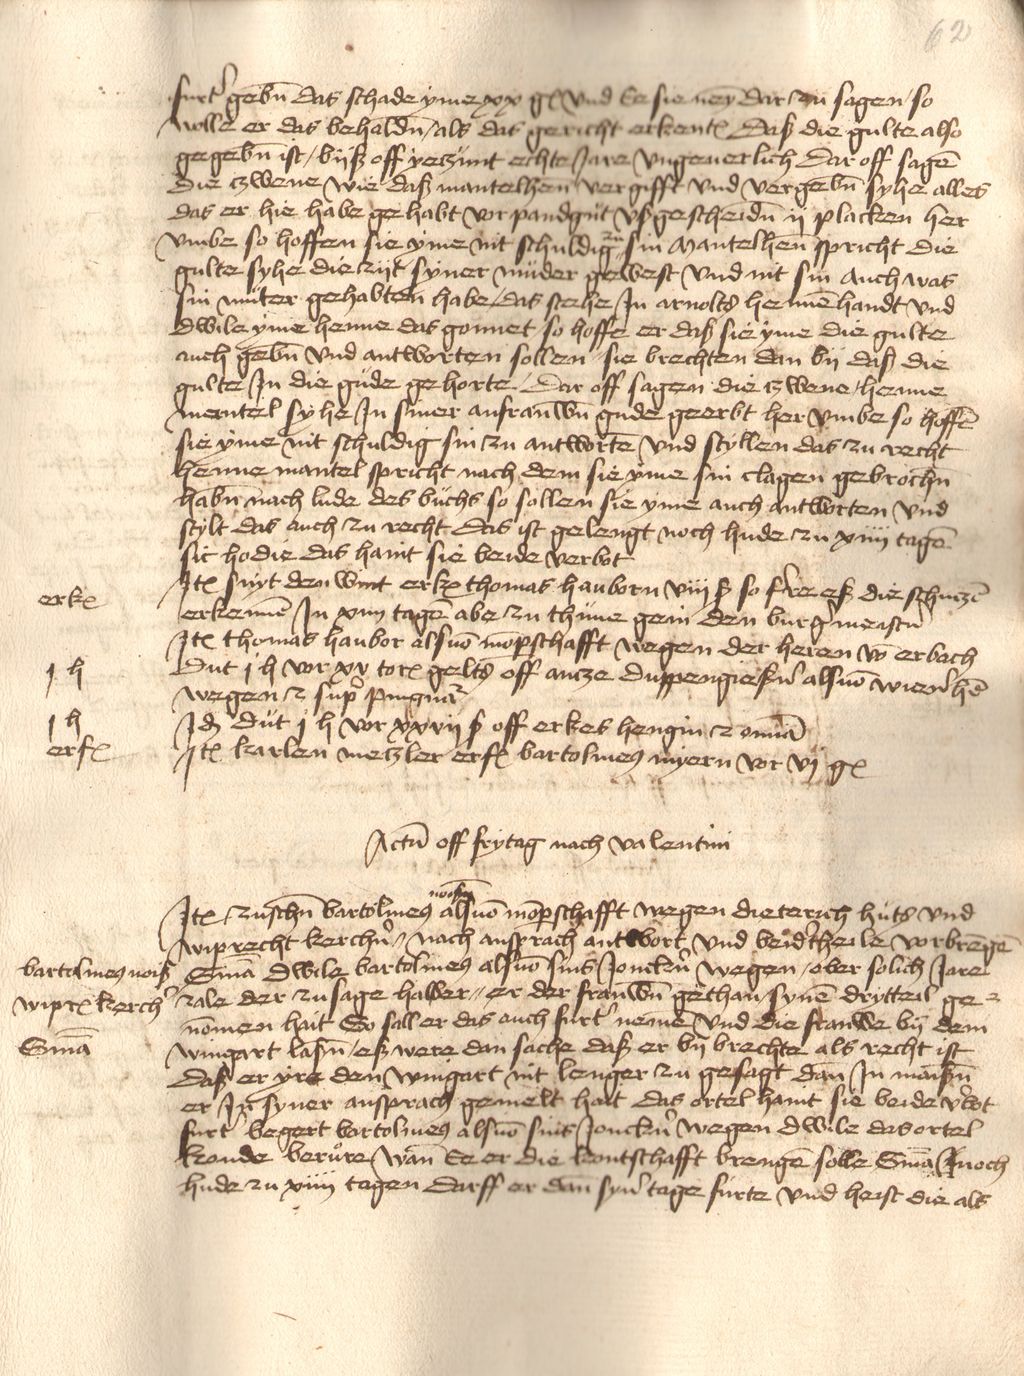 62
furt' gebn̄ das schade yme xx g₎ vnd Ee sie ney dar zu sagen / so
wolle er das behaldn̄ / als das gericht erkent₎ Daß die gulte also
gegebn̄ ist / byß off yeczunt echte Jare vngeuerlich dar off sagē
die czwene wie daß mantelhen vergifft vnd vergebn̄ syhe alles
das er hie habe gehabt vor pandgut vßgescheidn̄ ij placken her
vmbe so hoffen sie yme nit schuldig zu sin Mantelhen spricht die
gulte syhe die zijt syner muder gewest vnd nit sin Auch was
sin muter gehabten habe / das stehe Jn arnolts hennē handt vnd
dwile yme henne das gonnet so hoffe er daß sie yme die gulte
auch gebn̄ vnd antworten sollen / sie brechten dan bij daß die
gulte Jn die gude gehorte / Dar off sagen die czwene / henne
mentel syhe Jn siner anfrauwn̄ gude geerbt her vmbe so hoffē
sie yme nit schuldig sin zu antwortē / vnd styllen das zu recht
henne mantel spricht nach dem sie yme sin clagen gebrochn̄
habn̄ nach lude des buchs so sollen sie yme auch antworten vnd
stylt das auch zu recht das ist gelengt noch hude zu xiiij tagē
sic hodie das haint sie beide verbot
erk₎
Jt₎ fuyt den wirt erk₎ thomas hauborn viij ß so ferre eß die schuczē
erkennē Jn xiiij tagē abe zu thune gein den burgmeistn̄
Jt₎ thomas haubor alsuō mōpschafft wegen der heren vō erbach
j h
dut j h vor xv torₓ gelts off antze duppengießn̄ alsuō wiener hē
wegen z sup' pingn̄
j h
Jdꝫ dut j h vor xxvij ß off erkes hengin z omā
erf₎
Jt₎ karlen meczler erf₎ bartolmeꝰ myern vor vj g₎
Actū off frytag nach valentini
Jt₎ zuschn̄ bartolmeꝰ alsuō mōpschafft wegen dieterich huts vnd
wiprecht kerchn̄ / nach ansprach antwort vnd beid' theile vorbrēgē
bartolmeus noiß
Smā dwile bartolmeꝰ alsuō sins Jonckn̄ wegen / ober solich Jare
wipr₎ kerch'
zale der zusage halber / er der frauwn̄ gethan / synē drytteil ge
nōmen hait So sall er das auch furt' nemē vnd die frauwe bij dem
Smā
wingart laßn̄ / eß were dan sache daß er bij brechte als recht ist
daß er yre den wingart nit lenger zu gesagt dan Jn maißn̄
er Jn syner ansprach gemelt hait das ortel haint sie beide v'bot
furt' begert bartolmeꝰ alsuō sins Jonckn̄ wegen dwile das ortel
konde berure / wan Ee er die kontschafft brengē solle Smā noch
hude zu xiiij tagen darff er dan syn' tage furte vnd heist die als